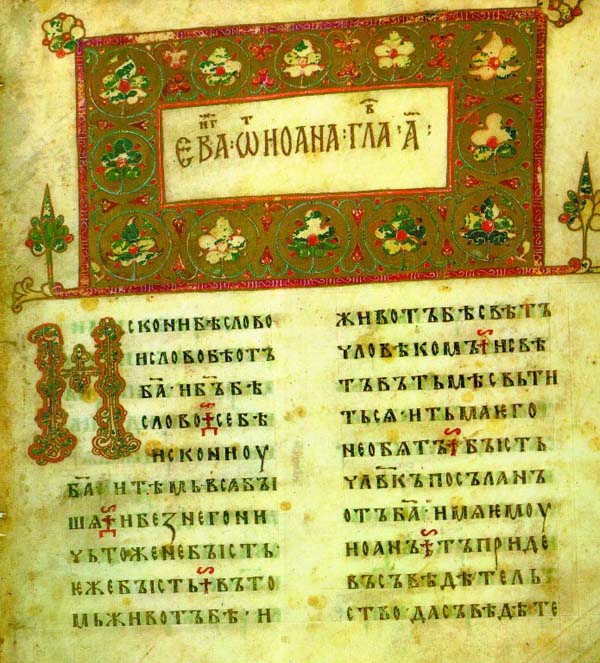 ЕВАⷩ҇ⷢ · Ѿ ИОАНА · ГЛАⷡ · А҃ :
ИСКОНИБѢСЛОВО
ИСЛОВОБѢОТЪ
БА҃ · ИБЪ҃БѢ
СЛОВО · СЕБѢ
ИСКОНИОУ
БА҃ · ИТѢМЬВСАБЪІ
ШѦ · ИБЕЗНЕГОНИ
ЧЬТОЖЕНЕБЪІСТЬ ·
ѤЖЕБЪІСТЬ · ВЪТО
МЬЖИВОТЪБѢ · И
ЖИВОТЪБѢСВѢТЪ
ЧЛОВѢКОМЪ · ИСВѢ
ТЪВЪТЬМѢСВЬТИ
ТЬСЯ · ИТЬМАѤГО
НЕОБѦТЪ · БЪІСТЬ
ЧЛВ҃КЪПОСЪЛАНЪ
ОТЪБА҃ · ИМѦѤМОУ
ИОАНЪ · ТЪПРИДЕ
ВЪСЪВѢДѢТЕЛЬ
СТВО · ДАСЪВѢДѢТЕ